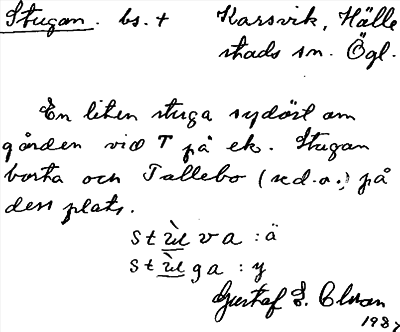 Stugan. bs. + Karsvik, Hälle
stads sn. Ögl.
En liten stuga sydöst om
gården vid T på ek. Stugan
borta och Tallebo (s.d.o.) på
dess plats.
st ùl va : ä
st ùl ga : y
Gustaf E.
198